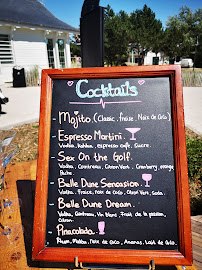 Cocktails
_ Mojito. (Classic, fraise, Noix de Coco)
_ Espresso Martini.
Vodka, Kahlua, espresso café, Sucre.
_ Sex On the Golf.
Vodka, Cointreau, Citron Vert, Cranberry, orange
Pêche.
_ Belle Dune Sensation.
Vodka, Fraise, Noix de Coco, Citron Vert, Soda.
_ Belle Dune Dream.
Vodka, Cointreau, Vin blanc, Fruit de la passion,
Citron.
_ Pinacolada.
Rhum, Malibu, Noix de Coco, Ananas, Lait de Coco.